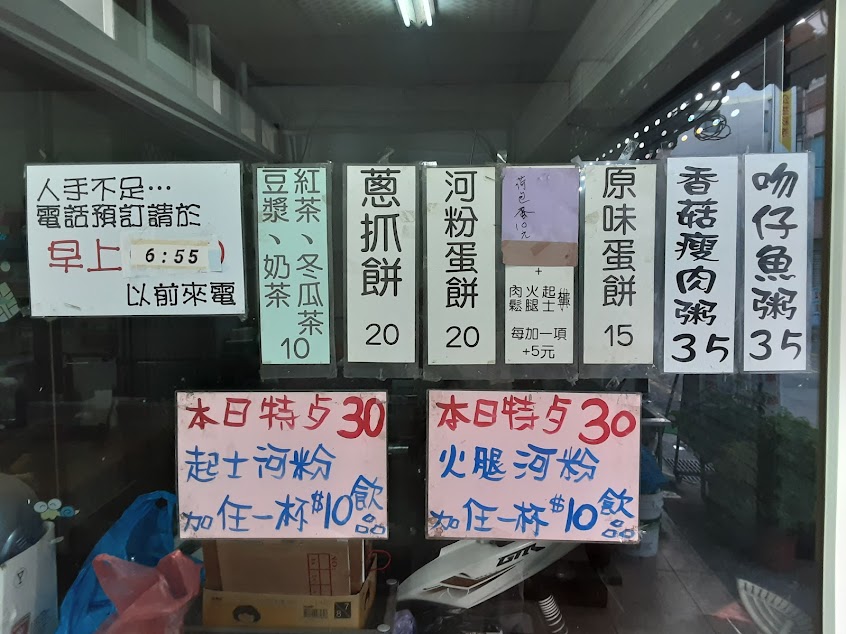 人手不足…
電話預訂請於
早上 6:55
以前來電
紅茶、冬瓜茶
豆漿、奶茶
10
蔥抓餅
20
河粉蛋餅
20
荷包蛋
10元
+
起士
火腿
肉鬆
每加一項
+5元
原味蛋餅
15
香菇瘦肉粥
35
吻仔魚粥
35
本日特歺30
起士河粉
加任一杯$10飲品
本日特歺30
火腿河粉
加任一杯$10飲品